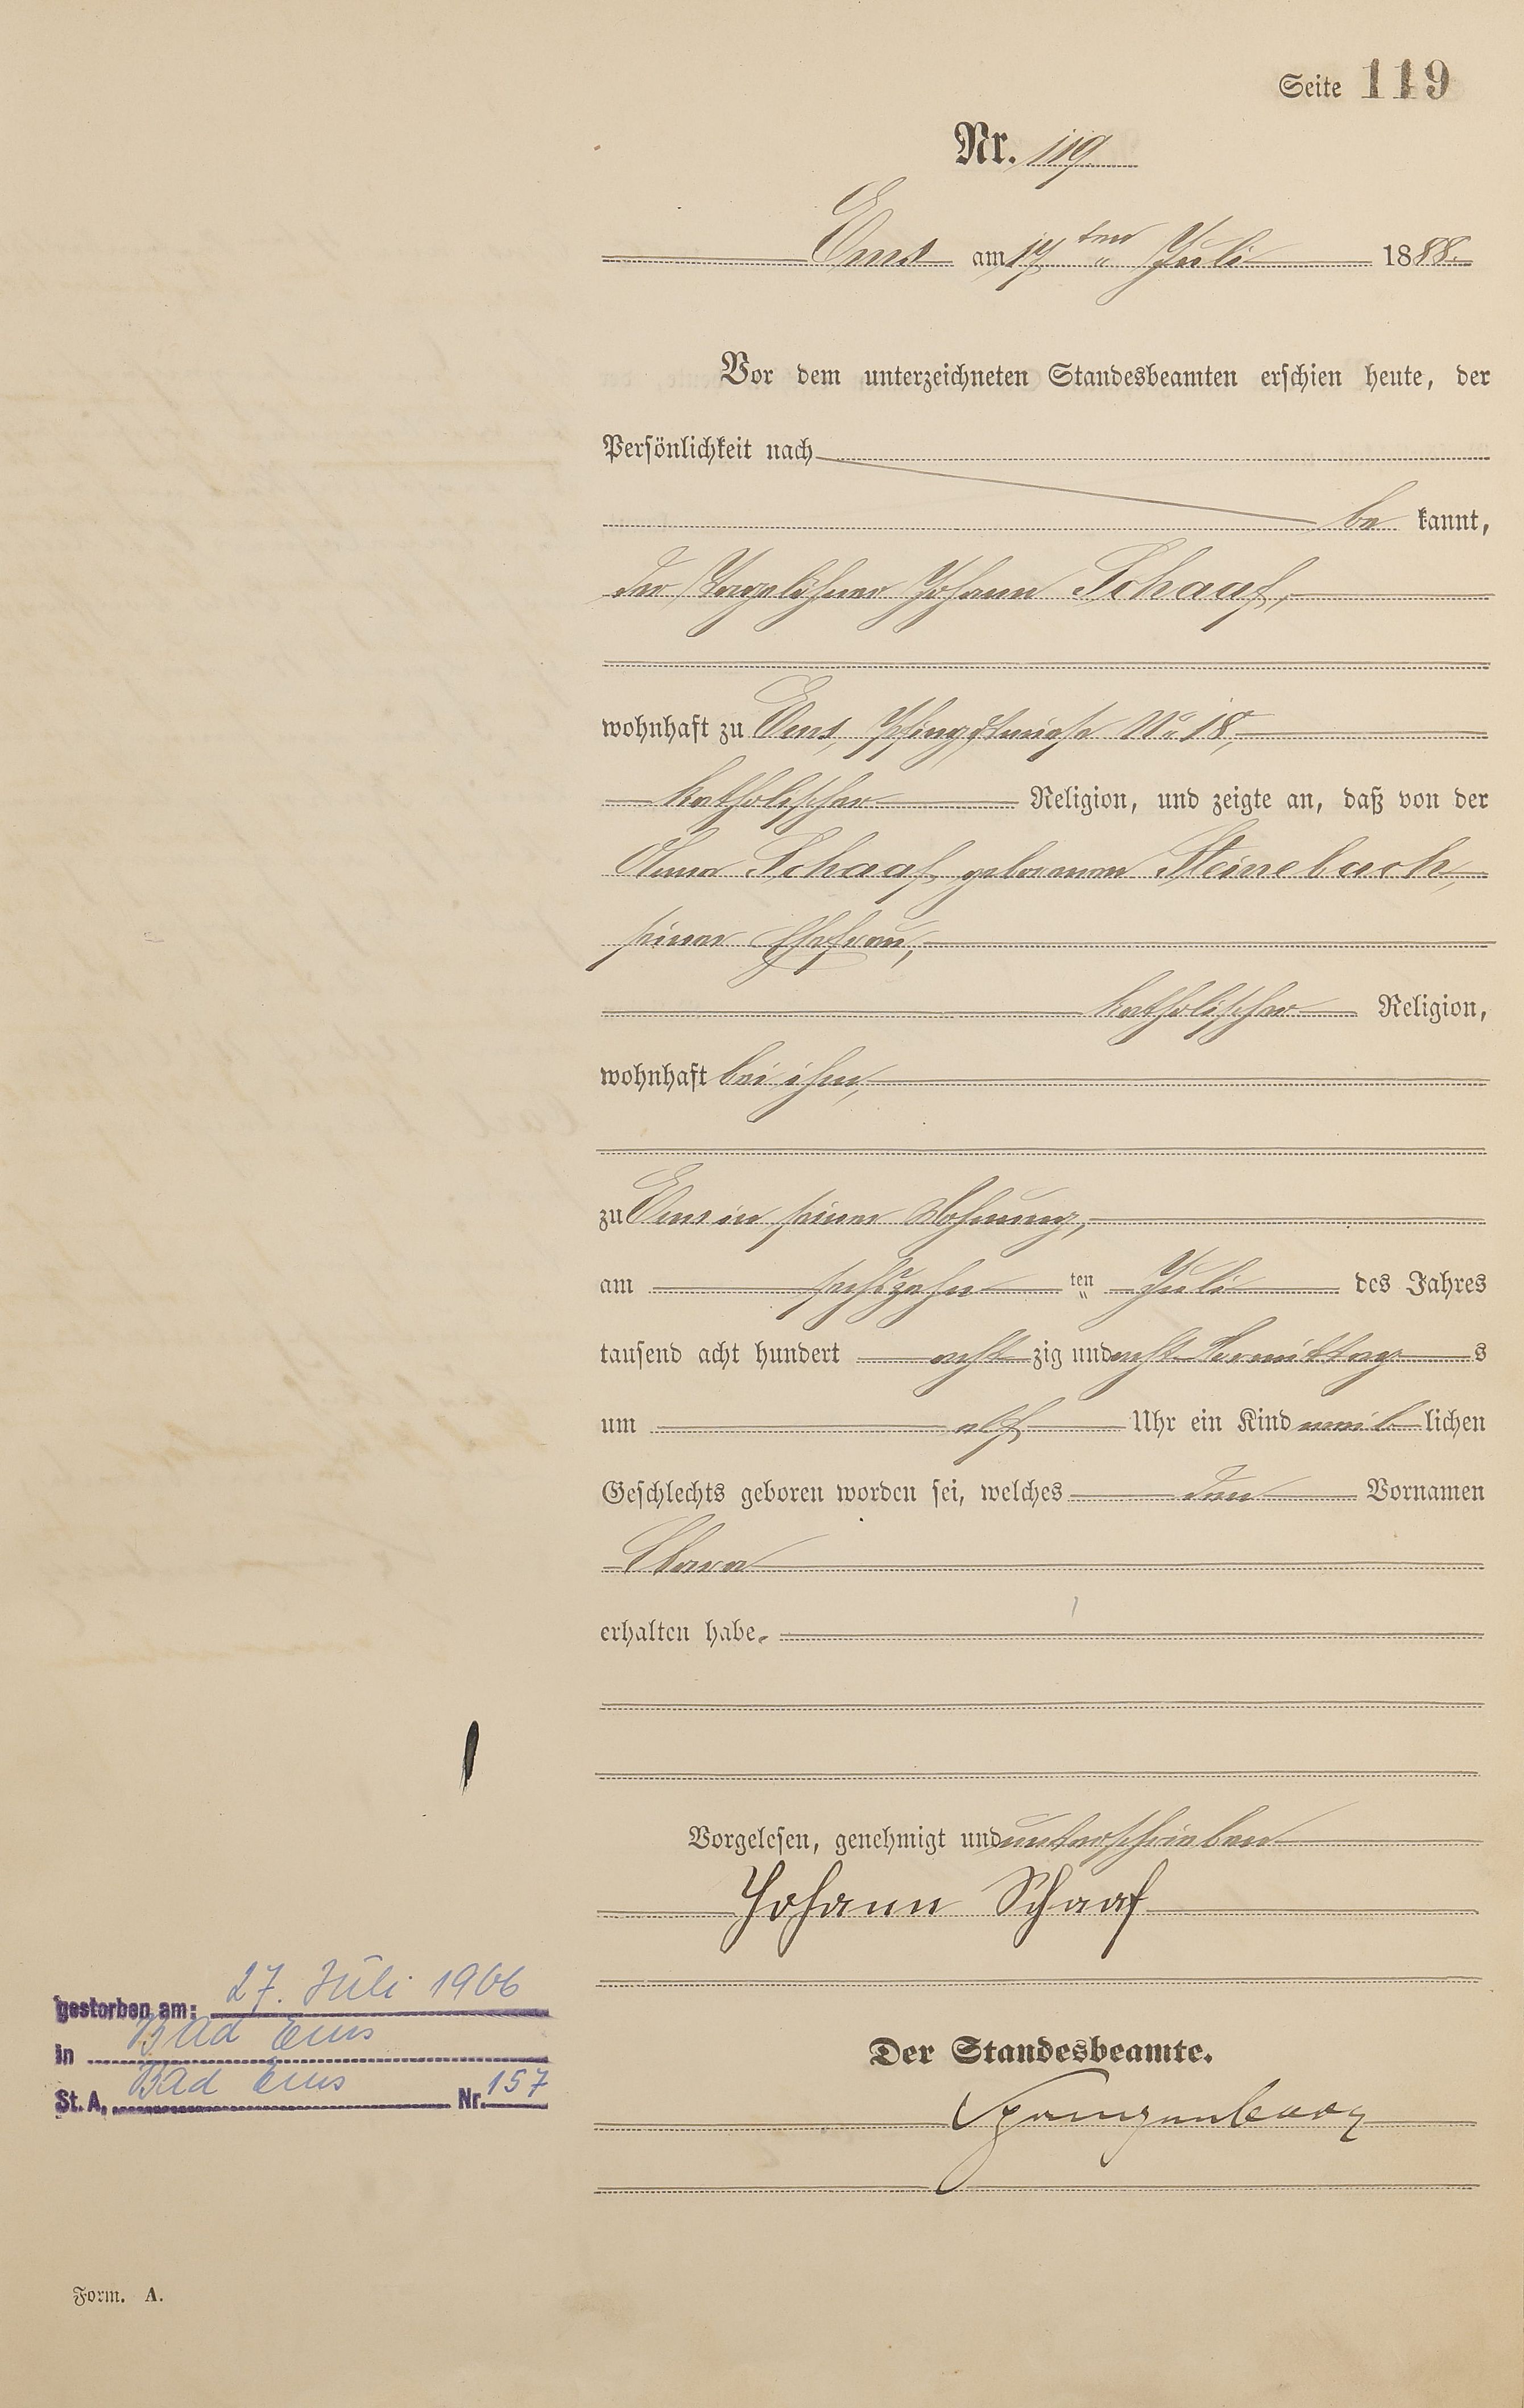 Seite 119
Nr. 119
Ems am 17ten Juli 1888.
Vor dem unterzeichneten Standesbeamten erschien heute, der
Persönlichkeit nach
be kannt,
der Tagelöhner Johann Schaaf,
wohnhaft zu Ems, Pfingstwiese No 18,
katholischer Religion, und zeigte an, daß von der
Anna Schaaf, geborenen Steinebach,
seiner Ehefrau,
katholischer Religion,
wohnhaft bei ihm,
zu Ems in seiner Wohnung,
am sechszehn ten Juli des Jahres
tausend acht hundert acht zig und acht Vormittag s
um elf Uhr ein Kind weib lichen
Geschlechts geboren worden sei, welches den Vornamen
Clara
erhalten habe.
Vorgelesen, genehmigt und unterschrieben
Johann Schaaf
gestorben am: 27. Juli 1906
in Bad Ems
St. A. Bad Ems Nr. 157
Der Standesbeamte.
Form. A.